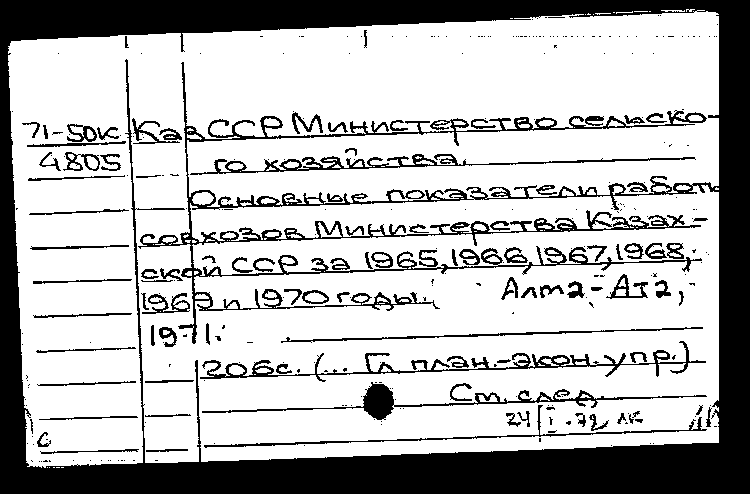 71-50к КазССР Министерство сельско-
4805 го хозяйства.
Основные показатели работы
совхозов Министерства Казах-
ской ССР за 1965,1966,1967,1968,
1969 и 1970 годы. Алма-Ата,
1971.
206с. (... Гл план.-экон.упр.)
См. след.
24 I.72
с